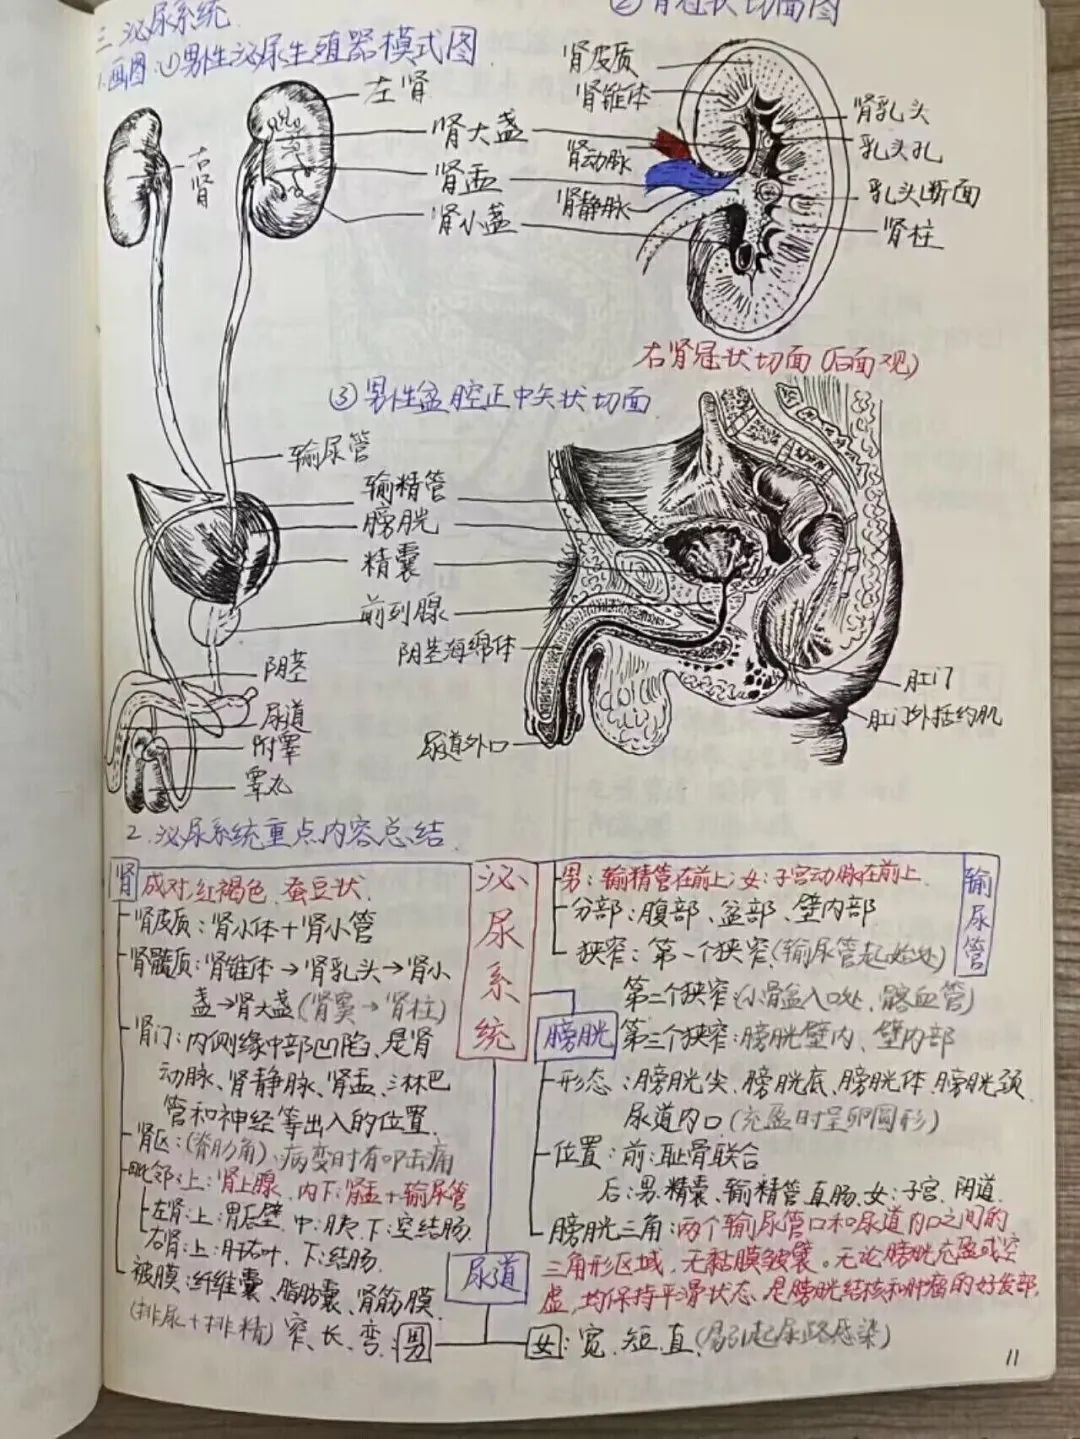 三.泌尿系统
1.画图:①男性泌尿生殖器模式图
②肾冠状切面图
左肾
右肾
肾大盏
肾盂
肾小盏
肾皮质
肾锥体
肾动脉
肾静脉
肾乳头
乳头孔
乳头断面
肾柱
右肾冠状切面(后面观)
③男性盆腔正中矢状切面
输尿管
输精管
膀胱
精囊
前列腺
阴茎海绵体
阴茎
尿道
附睾
睾丸
尿道外口
肛门
肛门外括约肌
2.泌尿系统重点内容总结
泌尿系统
肾
成对,红褐色、蚕豆状.
肾皮质:肾小体+肾小管
肾髓质:肾锥体→肾乳头→肾小
盏→肾大盏(肾窦→肾柱)
肾门:内侧缘中部凹陷、是肾
动脉、肾静脉、肾盂、淋巴
管和神经等出入的位置.
肾区:(脊肋角)、病变时有叩击痛
毗邻:上:肾上腺、内下:肾盂+输尿管
左肾:上:胃后壁.中:胰.下:空结肠.
右肾:上:肝右叶、下:结肠.
被膜:纤维囊、脂肪囊、肾筋膜
输尿管
男:输精管在前上;女:子宫动脉在前上.
分部:腹部、盆部、壁内部
狭窄:第一个狭窄(输尿管起始处)
第二个狭窄(小骨盆入口处、髂血管)
第三个狭窄:膀胱壁内、壁内部
膀胱
形态:膀胱尖、膀胱底、膀胱体、膀胱颈
尿道内口(充盈时呈卵圆形)
位置:前:耻骨联合
后:男.精囊、输精管.直肠.女:子宫.阴道.
膀胱三角:两个输尿管口和尿道内口之间的
三角形区域、无黏膜皱襞。无论膀胱充盈或空
虚,均保持平滑状态.是膀胱结核和肿瘤的好发部.
尿道
(排尿+排精)窄、长、弯:男
女:宽.短.直.(易引起尿路感染)
11